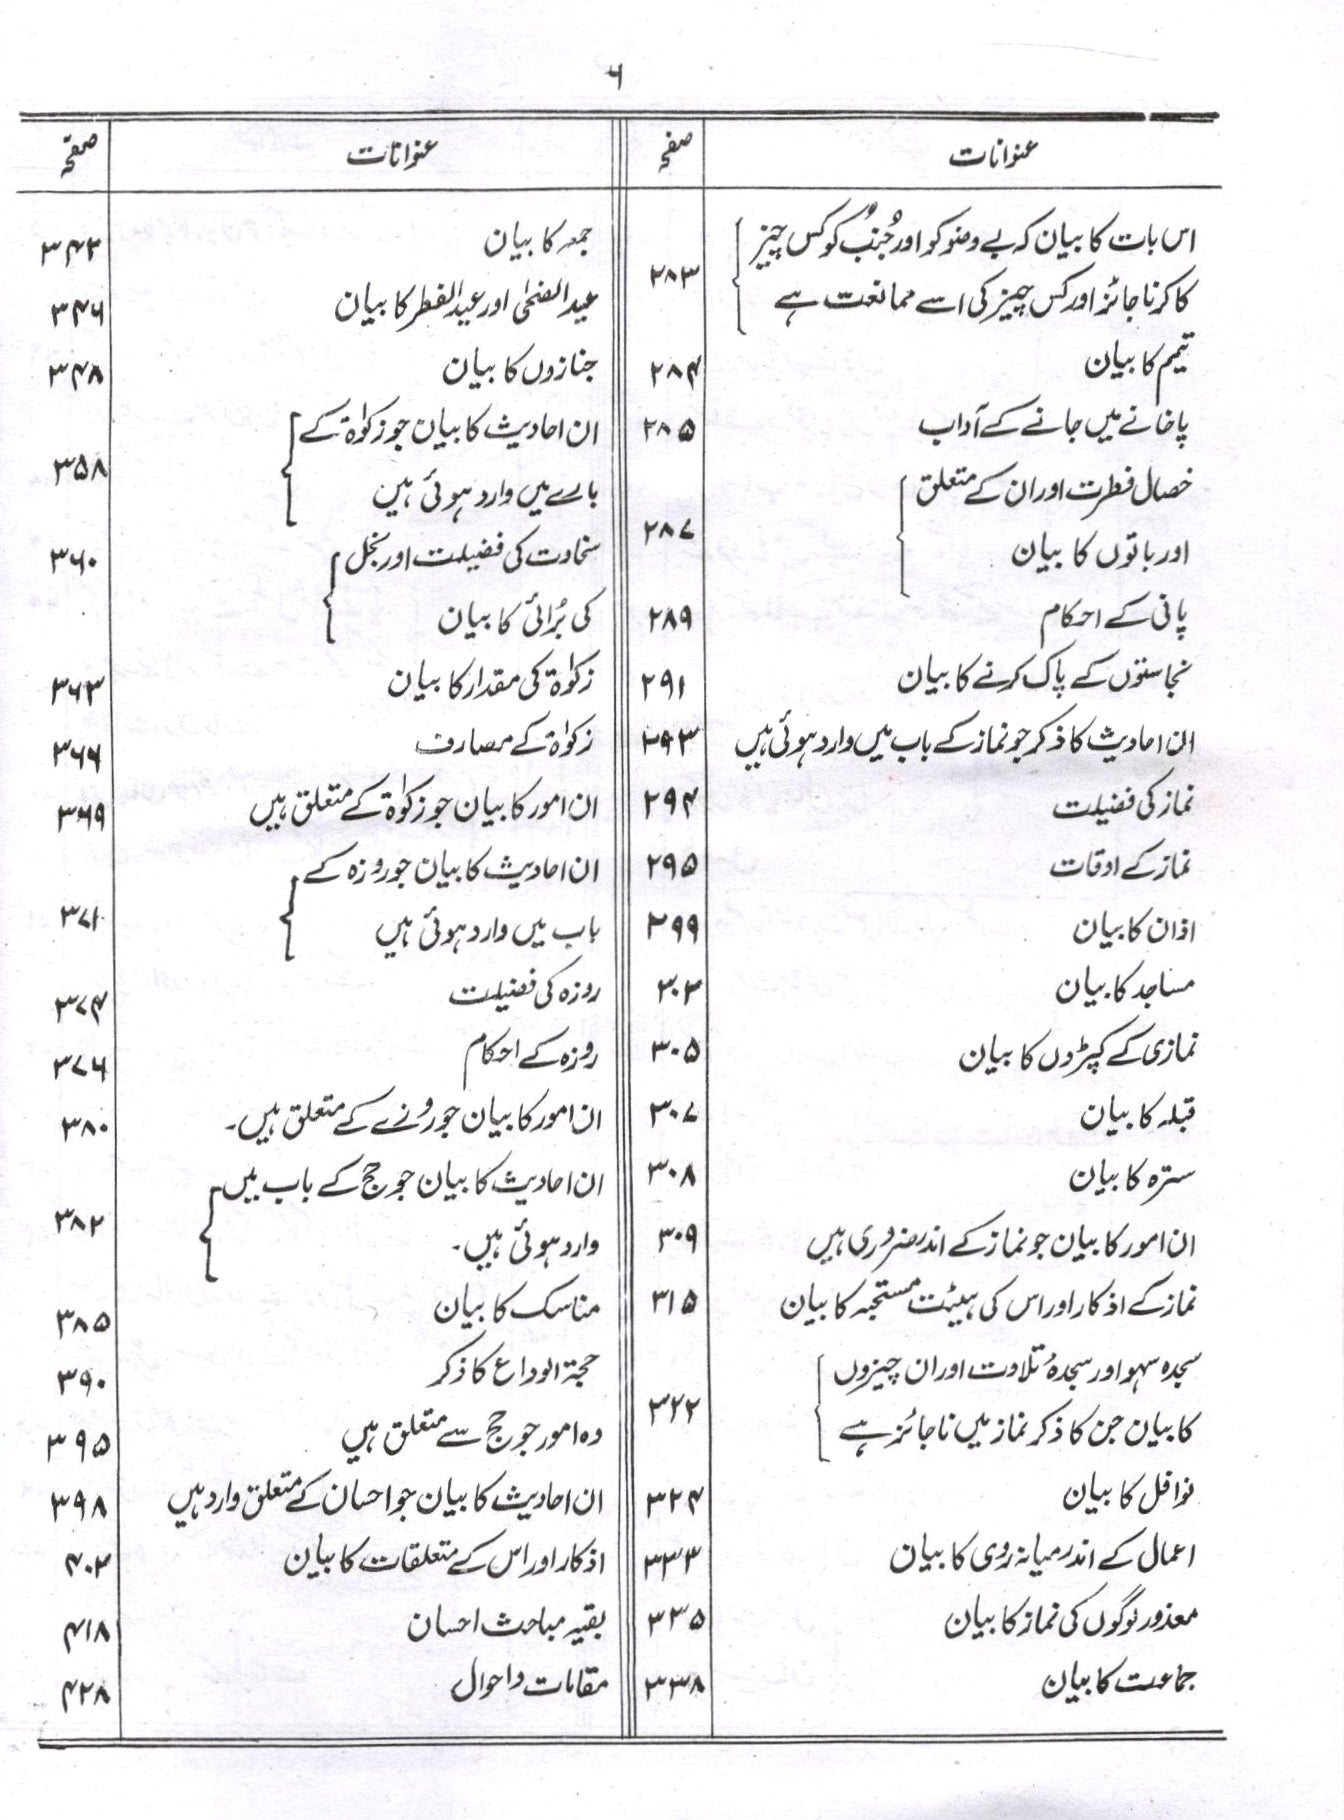 ۶
عنوانات صفحہ
اس بات کا بیان کہ بے وضو کو اور جُنُب کو کس چیز
کا کرنا جائز اور کس چیز کی اسے ممانعت ہے ۲۸۳
تیمم کا بیان ۲۸۴
پاخانے میں جانے کے آداب ۲۸۵
خصال فطرت اور ان کے متعلق
اور باتوں کا بیان ۲۸۷
پانی کے احکام ۲۸۹
نجاستوں کے پاک کرنے کا بیان ۲۹۱
ان احادیث کا ذکر جو نماز کے باب میں وارد ہوئی ہیں ۲۹۳
نماز کی فضیلت ۲۹۴
نماز کے اوقات ۲۹۵
اذان کا بیان ۲۹۹
مساجد کا بیان ۳۰۳
نمازی کے کپڑوں کا بیان ۳۰۵
قبلہ کا بیان ۳۰۷
سترہ کا بیان ۳۰۸
ان امور کا بیان جو نماز کے اندر ضروری ہیں ۳۰۹
نماز کے اذکار اور اس کی ہیئت مستحبہ کا بیان ۳۱۵
سجدہ سہو اور سجدۂ تلاوت اور ان چیزوں
کا بیان جن کا ذکر نماز میں ناجائز ہے ۳۲۲
نوافل کا بیان ۳۲۴
اعمال کے اندر میانہ روی کا بیان ۳۳۳
معذور لوگوں کی نماز کا بیان ۳۳۵
جماعت کا بیان ۳۳۸
عنوانات صفحہ
جمعہ کا بیان ۳۴۲
عید الضحیٰ اور عید الفطر کا بیان ۳۴۶
جنازوں کا بیان ۳۴۸
ان احادیث کا بیان جو زکوٰۃ کے
بارے میں وارد ہوئی ہیں ۳۵۸
سخاوت کی فضیلت اور بخل ۳۶۰
کی بُرائی کا بیان
زکوٰۃ کی مقدار کا بیان ۳۶۳
زکوٰۃ کے مصارف ۳۶۶
ان امور کا بیان جو زکوٰۃ کے متعلق ہیں ۳۶۹
ان احادیث کا بیان جو روزہ کے
باب میں وارد ہوئی ہیں ۳۷۱
روزہ کی فضیلت ۳۷۴
روزہ کے احکام ۳۷۶
ان امور کا بیان جو روزے کے متعلق ہیں۔ ۳۸۰
ان احادیث کا بیان جو حج کے باب میں
وارد ہوئی ہیں۔ ۳۸۲
مناسک کا بیان ۳۸۵
حجۃ الوداع کا ذکر ۳۹۰
وہ امور جو حج سے متعلق ہیں ۳۹۵
ان احادیث کا بیان جو احسان کے متعلق وارد ہیں ۳۹۸
اذکار اور اس کے متعلقات کا بیان ۴۰۲
بقیہ مباحث احسان ۴۱۸
مقامات و احوال ۴۲۸